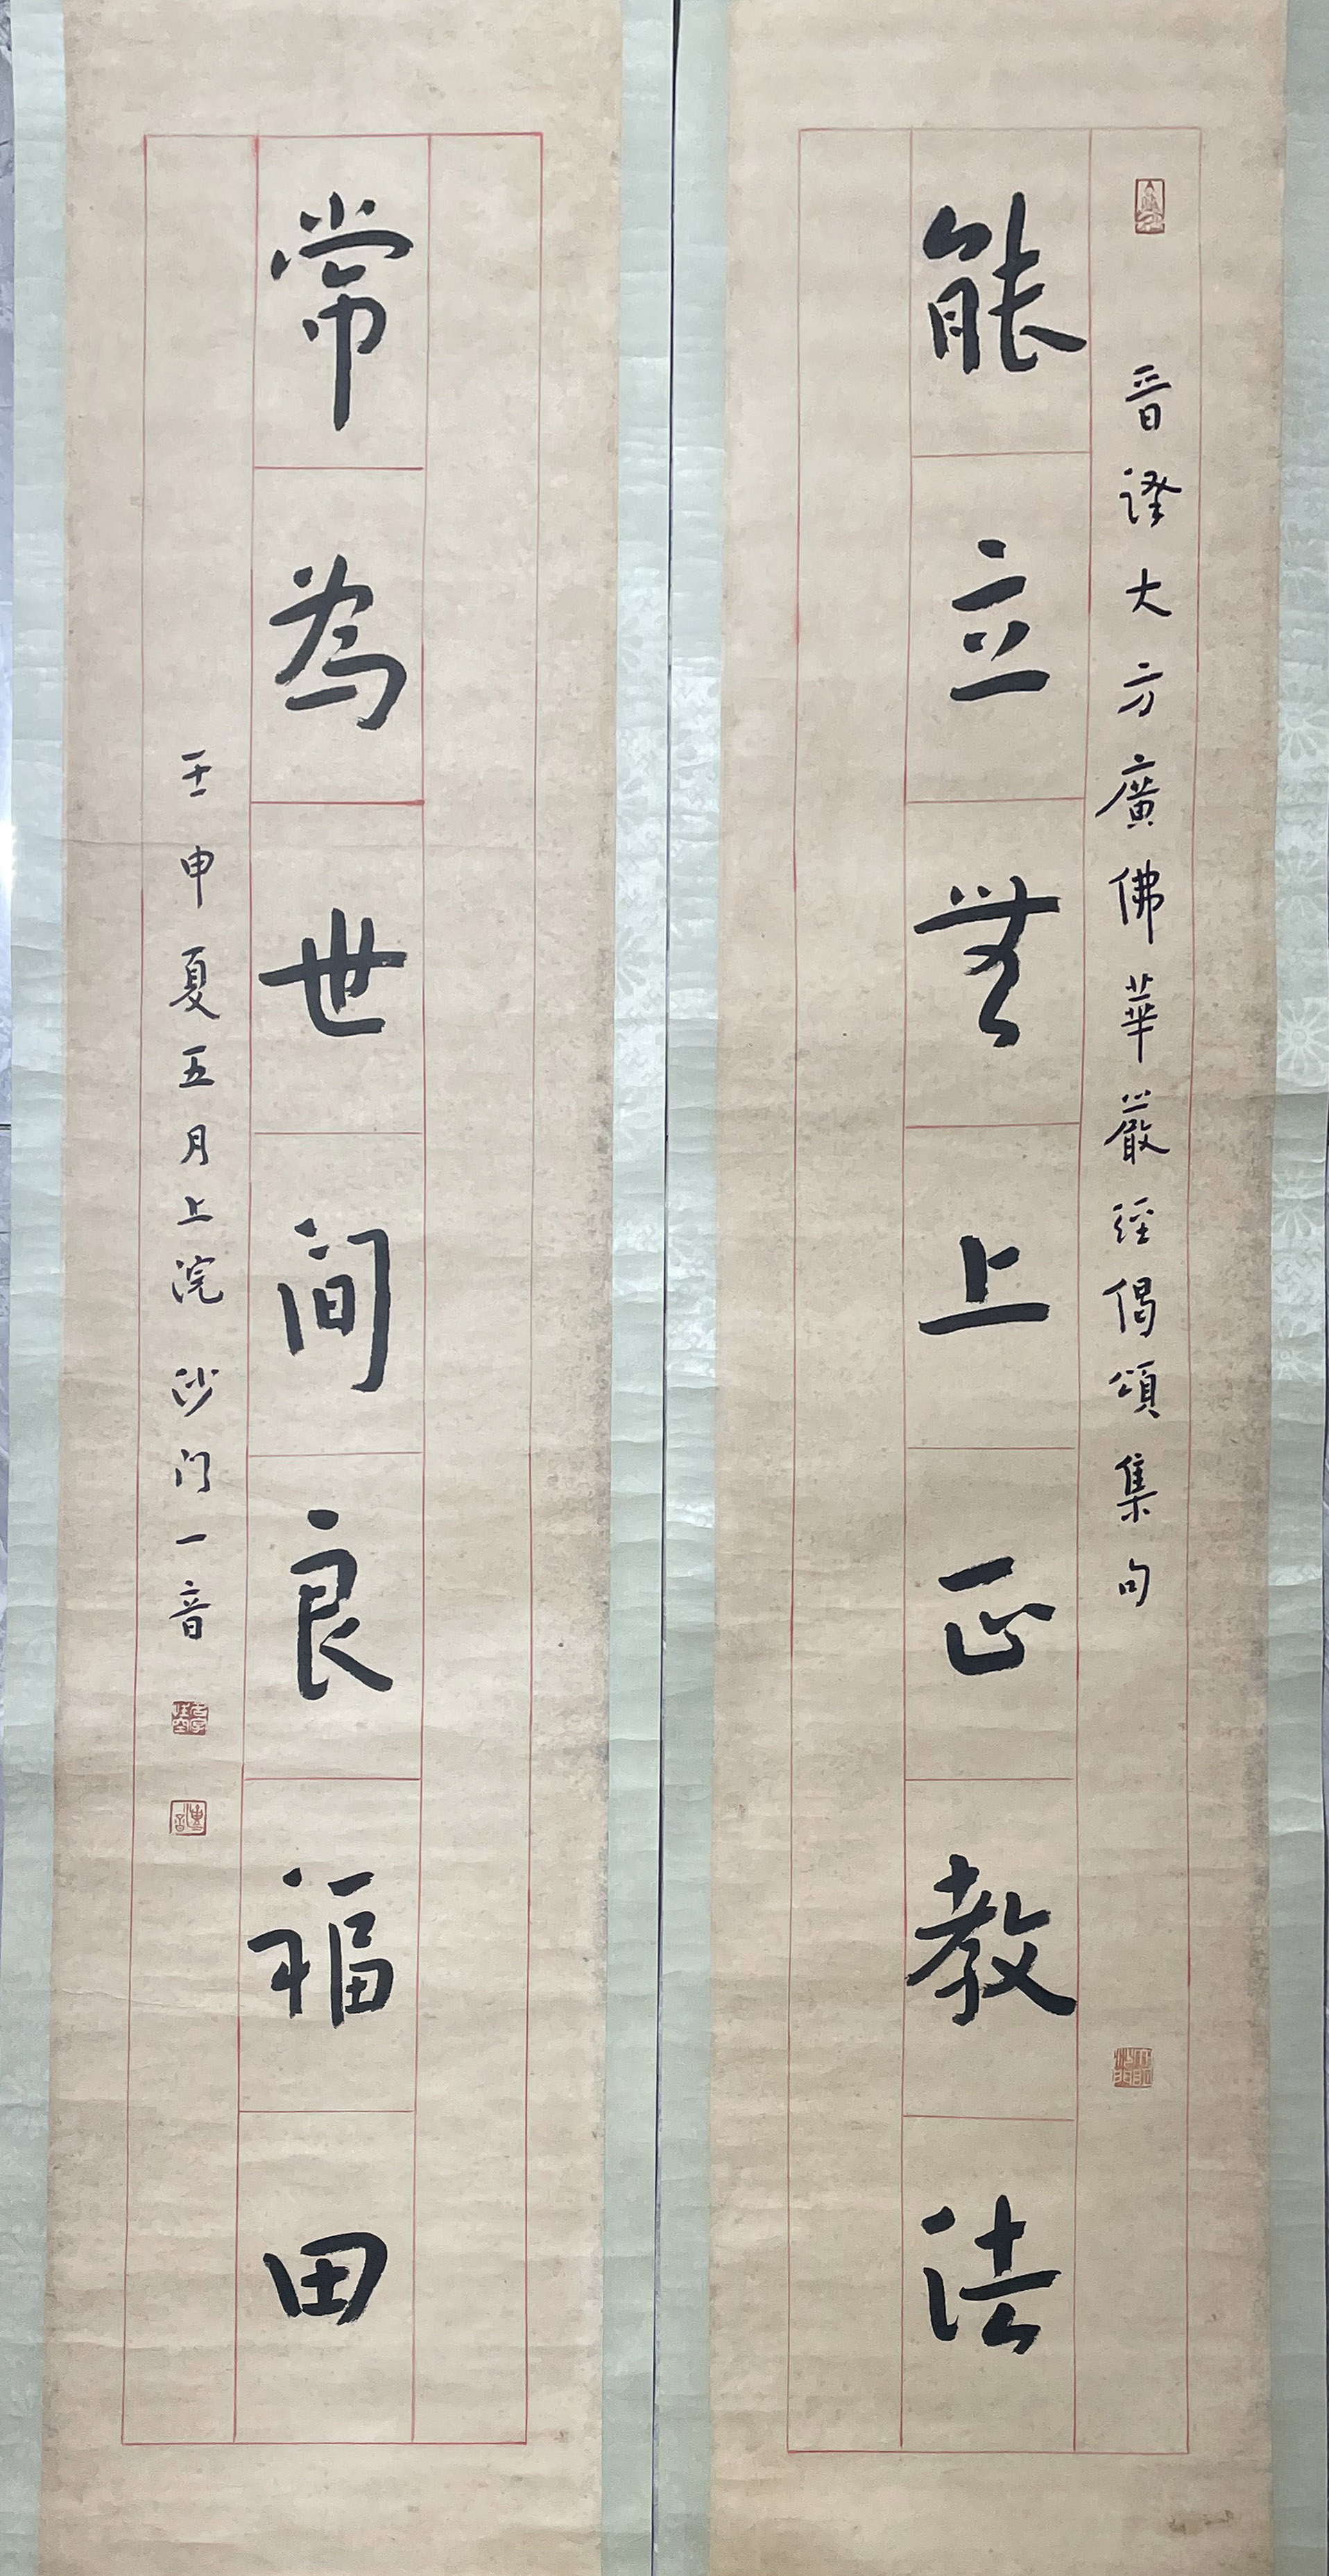 晋譯大方廣佛華嚴經偈頌集句
能立無上正教法
常為世间良福田
壬申夏五月上浣沙门一音